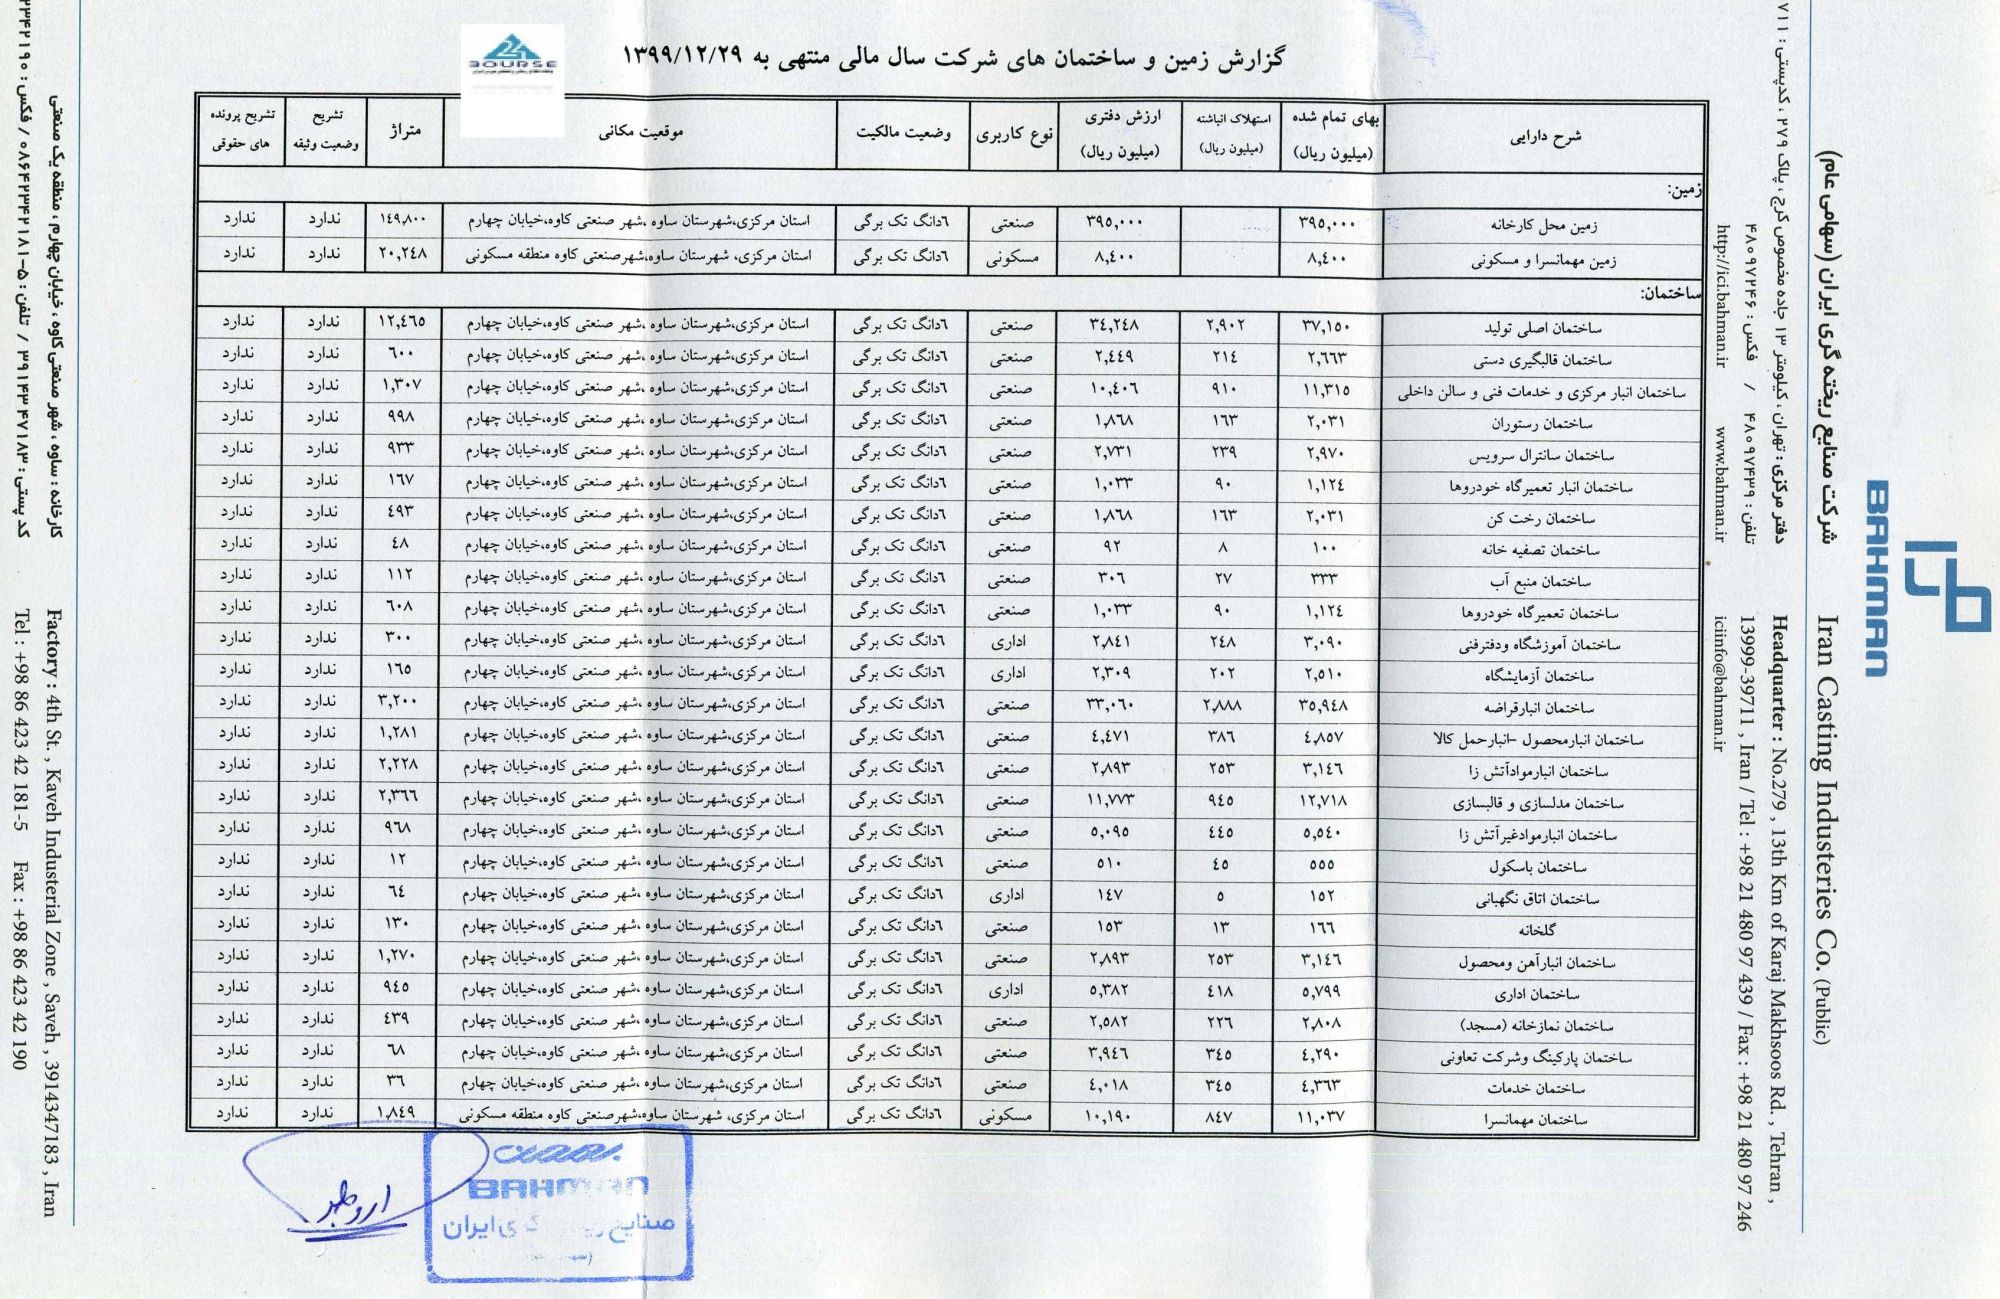 گزارش زمین و ساختمان های شرکت سال مالی منتهی به ۱۳۹۹/۱۲/۲۹
BOURSE
شرح دارایی بهای تمام شده (میلیون ریال) ارزش دفتری (میلیون ریال) استهلاک انباشته (میلیون ریال) نوع کاربری وضعیت مالکیت موقعیت مکانی متراژ تشریح وضعیت وثیقه تشریح پرونده های حقوقی
زمین:
زمین محل کارخانه ۳۹۵,۰۰۰ ۳۹۵,۰۰۰ صنعتی ۶دانگ تک برگی استان مرکزی،شهرستان ساوه ،شهر صنعتی کاوه،خیابان چهارم ۱۴۹,۸۰۰ ندارد ندارد
زمین مهمانسرا و مسکونی ۸,۴۰۰ ۸,۴۰۰ مسکونی ۶دانگ تک برگی استان مرکزی، شهرستان ساوه،شهرصنعتی کاوه منطقه مسکونی ۲۰,۲۴۸ ندارد ندارد
ساختمان:
ساختمان اصلی تولید ۳۷,۱۵۰ ۲,۹۰۲ ۳۴,۲۴۸ صنعتی ۶دانگ تک برگی استان مرکزی،شهرستان ساوه ،شهر صنعتی کاوه،خیابان چهارم ۱۲,۴۶۵ ندارد ندارد
ساختمان قالبگیری دستی ۲,۶۶۳ ۲۱۴ ۲,۴۴۹ صنعتی ۶دانگ تک برگی استان مرکزی،شهرستان ساوه ،شهر صنعتی کاوه،خیابان چهارم ۶۰۰ ندارد ندارد
ساختمان انبار مرکزی و خدمات فنی و سالن داخلی ۱۱,۳۱۵ ۹۱۰ ۱۰,۴۰۶ صنعتی ۶دانگ تک برگی استان مرکزی،شهرستان ساوه ،شهر صنعتی کاوه،خیابان چهارم ۱,۳۰۷ ندارد ندارد
ساختمان رستوران ۲,۰۳۱ ۱۶۳ ۱,۸۶۸ صنعتی ۶دانگ تک برگی استان مرکزی،شهرستان ساوه ،شهر صنعتی کاوه،خیابان چهارم ۹۹۸ ندارد ندارد
ساختمان سانترال سرویس ۲,۹۷۰ ۲۳۹ ۲,۷۳۱ صنعتی ۶دانگ تک برگی استان مرکزی،شهرستان ساوه ،شهر صنعتی کاوه،خیابان چهارم ۹۳۳ ندارد ندارد
ساختمان انبار تعمیرگاه خودروها ۱,۱۲۴ ۹۰ ۱,۰۳۳ صنعتی ۶دانگ تک برگی استان مرکزی،شهرستان ساوه ،شهر صنعتی کاوه،خیابان چهارم ۱۶۷ ندارد ندارد
ساختمان رخت کن ۲,۰۳۱ ۱۶۳ ۱,۸۶۸ صنعتی ۶دانگ تک برگی استان مرکزی،شهرستان ساوه ،شهر صنعتی کاوه،خیابان چهارم ۴۹۳ ندارد ندارد
ساختمان تصفیه خانه ۱۰۰ ۸ ۹۲ صنعتی ۶دانگ تک برگی استان مرکزی،شهرستان ساوه ،شهر صنعتی کاوه،خیابان چهارم ۴۸ ندارد ندارد
ساختمان منبع آب ۳۳۳ ۲۷ ۳۰۶ صنعتی ۶دانگ تک برگی استان مرکزی،شهرستان ساوه ،شهر صنعتی کاوه،خیابان چهارم ۱۱۲ ندارد ندارد
ساختمان تعمیرگاه خودروها ۱,۱۲۴ ۹۰ ۱,۰۳۳ صنعتی ۶دانگ تک برگی استان مرکزی،شهرستان ساوه ،شهر صنعتی کاوه،خیابان چهارم ۶۰۸ ندارد ندارد
ساختمان آموزشگاه ودفترفنی ۳,۰۹۰ ۲۴۸ ۲,۸۴۱ اداری ۶دانگ تک برگی استان مرکزی،شهرستان ساوه ،شهر صنعتی کاوه،خیابان چهارم ۳۰۰ ندارد ندارد
ساختمان آزمایشگاه ۲,۵۱۰ ۲۰۲ ۲,۳۰۹ اداری ۶دانگ تک برگی استان مرکزی،شهرستان ساوه ،شهر صنعتی کاوه،خیابان چهارم ۱۶۵ ندارد ندارد
ساختمان انبارقراضه ۳۵,۹۴۸ ۲,۸۸۸ ۳۳,۰۶۰ صنعتی ۶دانگ تک برگی استان مرکزی،شهرستان ساوه ،شهر صنعتی کاوه،خیابان چهارم ۳,۲۰۰ ندارد ندارد
ساختمان انبارمحصول –انبارحمل کالا ۴,۸۵۷ ۳۸۶ ۴,۴۷۱ صنعتی ۶دانگ تک برگی استان مرکزی،شهرستان ساوه ،شهر صنعتی کاوه،خیابان چهارم ۱,۲۸۱ ندارد ندارد
ساختمان انبارموادآتش زا ۳,۱۴۶ ۲۵۳ ۲,۸۹۳ صنعتی ۶دانگ تک برگی استان مرکزی،شهرستان ساوه ،شهر صنعتی کاوه،خیابان چهارم ۲,۲۲۸ ندارد ندارد
ساختمان مدلسازی و قالبسازی ۱۲,۷۱۸ ۹۴۵ ۱۱,۷۷۳ صنعتی ۶دانگ تک برگی استان مرکزی،شهرستان ساوه ،شهر صنعتی کاوه،خیابان چهارم ۲,۳۶۶ ندارد ندارد
ساختمان انبارموادغیرآتش زا ۵,۵۴۰ ۴۴۵ ۵,۰۹۵ صنعتی ۶دانگ تک برگی استان مرکزی،شهرستان ساوه ،شهر صنعتی کاوه،خیابان چهارم ۹۶۸ ندارد ندارد
ساختمان باسکول ۵۵۵ ۴۵ ۵۱۰ صنعتی ۶دانگ تک برگی استان مرکزی،شهرستان ساوه ،شهر صنعتی کاوه،خیابان چهارم ۱۲ ندارد ندارد
ساختمان اتاق نگهبانی ۱۵۲ ۵ ۱۴۷ اداری ۶دانگ تک برگی استان مرکزی،شهرستان ساوه ،شهر صنعتی کاوه،خیابان چهارم ۶۴ ندارد ندارد
گلخانه ۱۶۶ ۱۳ ۱۵۳ صنعتی ۶دانگ تک برگی استان مرکزی،شهرستان ساوه ،شهر صنعتی کاوه،خیابان چهارم ۱۳۰ ندارد ندارد
ساختمان انبارآهن ومحصول ۳,۱۴۶ ۲۵۳ ۲,۸۹۳ صنعتی ۶دانگ تک برگی استان مرکزی،شهرستان ساوه ،شهر صنعتی کاوه،خیابان چهارم ۱,۲۷۰ ندارد ندارد
ساختمان اداری ۵,۷۹۹ ۴۱۸ ۵,۳۸۲ اداری ۶دانگ تک برگی استان مرکزی،شهرستان ساوه ،شهر صنعتی کاوه،خیابان چهارم ۹۴۵ ندارد ندارد
ساختمان نمازخانه (مسجد) ۲,۸۰۸ ۲۲۶ ۲,۵۸۲ صنعتی ۶دانگ تک برگی استان مرکزی،شهرستان ساوه ،شهر صنعتی کاوه،خیابان چهارم ۴۳۹ ندارد ندارد
ساختمان پارکینگ وشرکت تعاونی ۴,۲۹۰ ۳۴۵ ۳,۹۴۶ صنعتی ۶دانگ تک برگی استان مرکزی،شهرستان ساوه ،شهر صنعتی کاوه،خیابان چهارم ۶۸ ندارد ندارد
ساختمان خدمات ۴,۳۶۳ ۳۴۵ ۴,۰۱۸ صنعتی ۶دانگ تک برگی استان مرکزی،شهرستان ساوه ،شهر صنعتی کاوه،خیابان چهارم ۳۶ ندارد ندارد
ساختمان مهمانسرا ۱۱,۰۳۷ ۸۴۷ ۱۰,۱۹۰ مسکونی ۶دانگ تک برگی استان مرکزی، شهرستان ساوه،شهرصنعتی کاوه منطقه مسکونی ۱,۸۴۹ ندارد ندارد
بهمن
BAHMAN
صنایع ایران
BAHMAN
شرکت صنایع ریخته گری ایران (سهامی عام)
Iran Casting Industeries Co. (Public)
دفتر مرکزی : تهران ، کیلومتر ۱۳ جاده مخصوص کرج ، پلاک ۲۷۹ ، کدپستی :
تلفن : ۴۸۰۹۷۴۳۹ / فکس : ۴۸۰۹۷۲۴۶
http://ici.bahman.ir www.bahman.ir
Headquarter : No.279 , 13th Km of Karaj Makhsoos Rd. , Tehran ,
13999-39711 , Iran / Tel : +98 21 480 97 439 / Fax : +98 21 480 97 246
iciinfo@bahman.ir
کارخانه : ساوه ، شهر صنعتی کاوه ، خیابان چهارم ، منطقه یک صنعتی
کد پستی : ۳۹۱۴۳۴۷۱۸۳ / تلفن : ۵-۰۸۶۴۲۳۴۲۱۸۱ / فکس :
Factory : 4th St. , Kaveh Industerial Zone , Saveh , 3914347183 , Iran
Tel : +98 86 423 42 181-5 Fax : +98 86 423 42 190